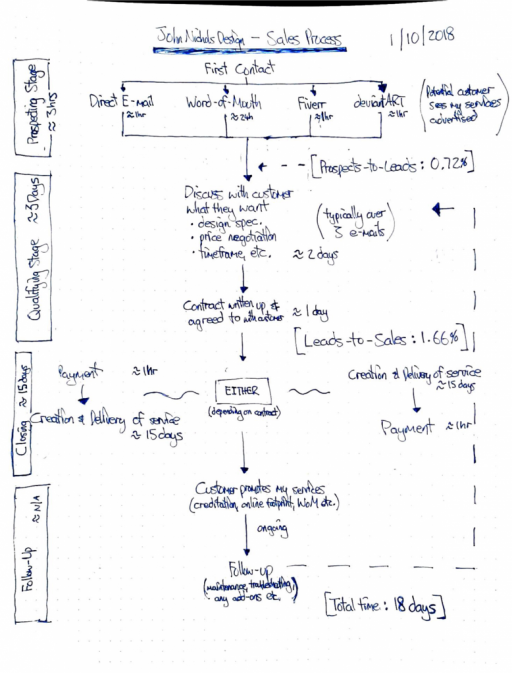 John Nichols Design – Sales Process
1/10/2018
Prospecting Stage
≈ 3hrs
First Contact
Direct E-mail
≈ 1hr
Word-of-Mouth
≈ 24h
Fiverr
≈ 1hr
deviantART
≈ 1hr
(Potential customer
sees my services
advertised)
[Prospects-to-Leads: 0.72%]
Qualifying Stage ≈ 3 Days
Discuss with customer
what they want
• design spec.
• price negotiation
• timeframe, etc. ≈ 2 days
(typically over
3 e-mails)
Contract written up &
agreed to with customer ≈ 1 day
[Leads-to-Sales: 1.66%]
Closing ≈ 15 days
Payment ≈ 1hr
Creation & Delivery of service
≈ 15 days
EITHER
(depending on contract)
Creation & Delivery of service
≈ 15 days
Payment ≈ 1hr
Follow-Up ≈ N/A
Customer promotes my services
(creditation, online footprint, WoM etc.)
ongoing
Follow-up
(maintenance, troubleshooting,
any add-ons etc.)
[Total time: 18 days]